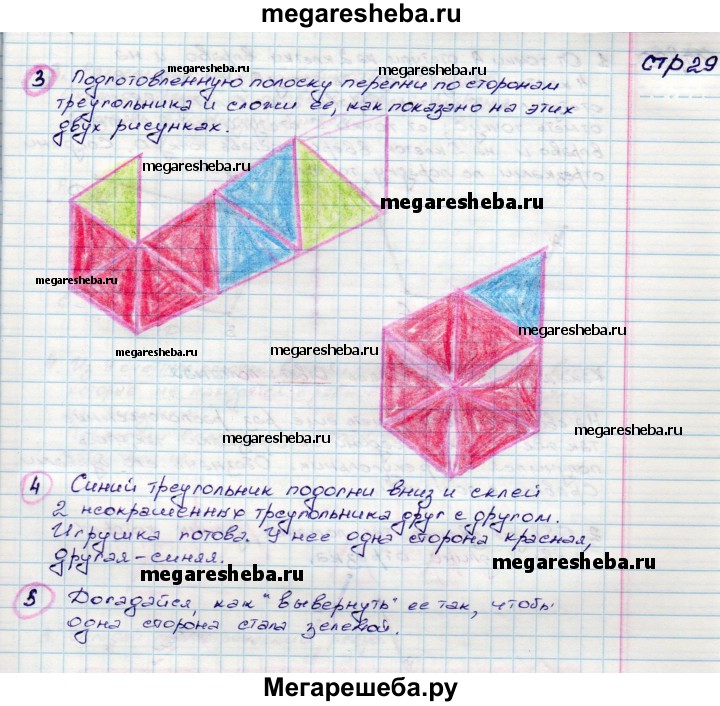 megaresheba.ru
стр 29
3 Подготовленную полоску перегни по сторонам
треугольника и сложи ее, как показано на этих
двух рисунках.
megaresheba.ru
megaresheba.ru
megaresheba.ru
megaresheba.ru
megaresheba.ru
megaresheba.ru
megaresheba.ru
megaresheba.ru
megaresheba.ru
megaresheba.ru
4 Синий треугольник подогни вниз и склей
2 неокрашенных треугольника друг с другом.
Игрушка готова. У нее одна сторона красная,
другая - синяя.
megaresheba.ru
megaresheba.ru
5 Догадайся, как "вывернуть" ее так, чтобы
одна сторона стала зеленой.
Мегарешеба.ру